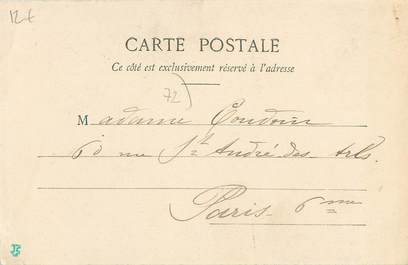 12 €
CARTE POSTALE
Ce côté est exclusivement réservé à l'adresse
72
Madame Coudoin
60 rue St André des Arts
Paris 6me